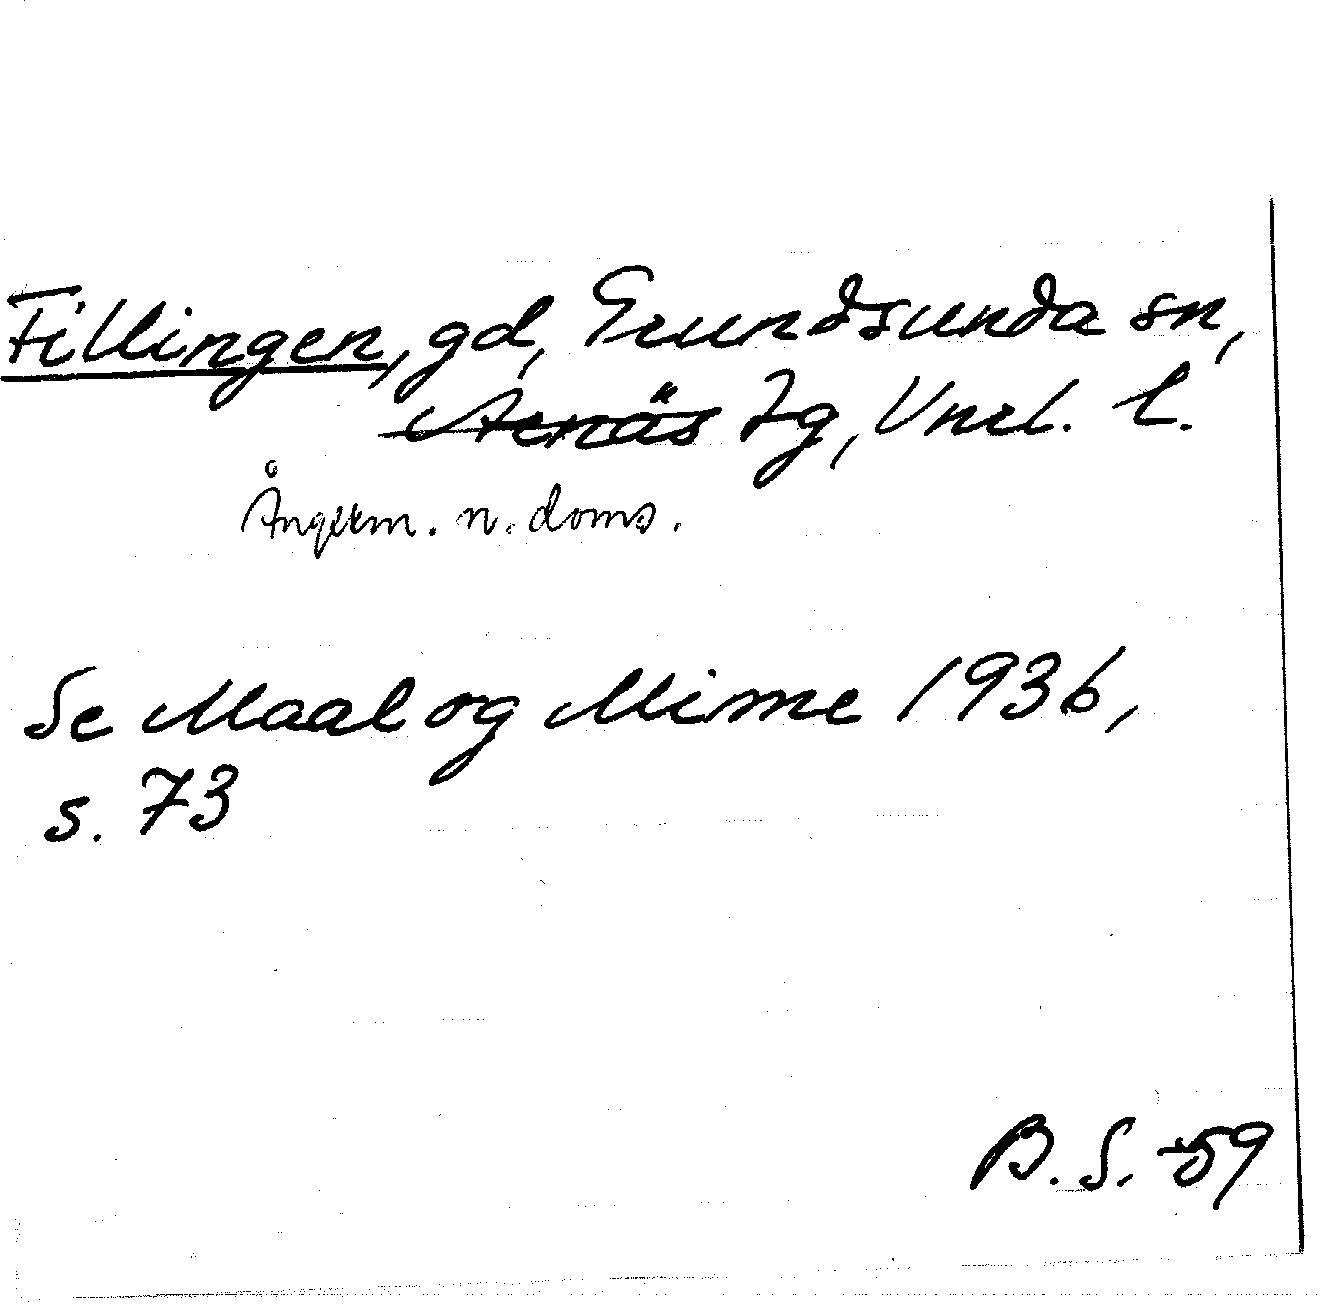 Fillingen, gd, Grundsunda sn,
Arnäs tg, Vnrl. l.
Ångerm. n. doms.
Se Maal og Minne 1936,
s. 73
B. S. -59